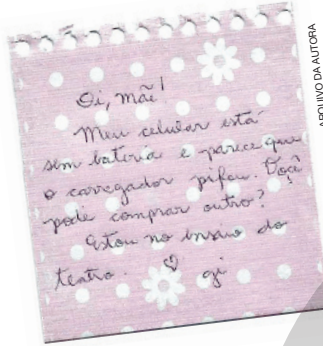 Oi, mãe!
Meu celular está
sem bateria e parece que
o carregador pifou. Você
pode comprar outro?
Estou no ensaio do
teatro. ♡ gi
ARQUIVO DA AUTORA